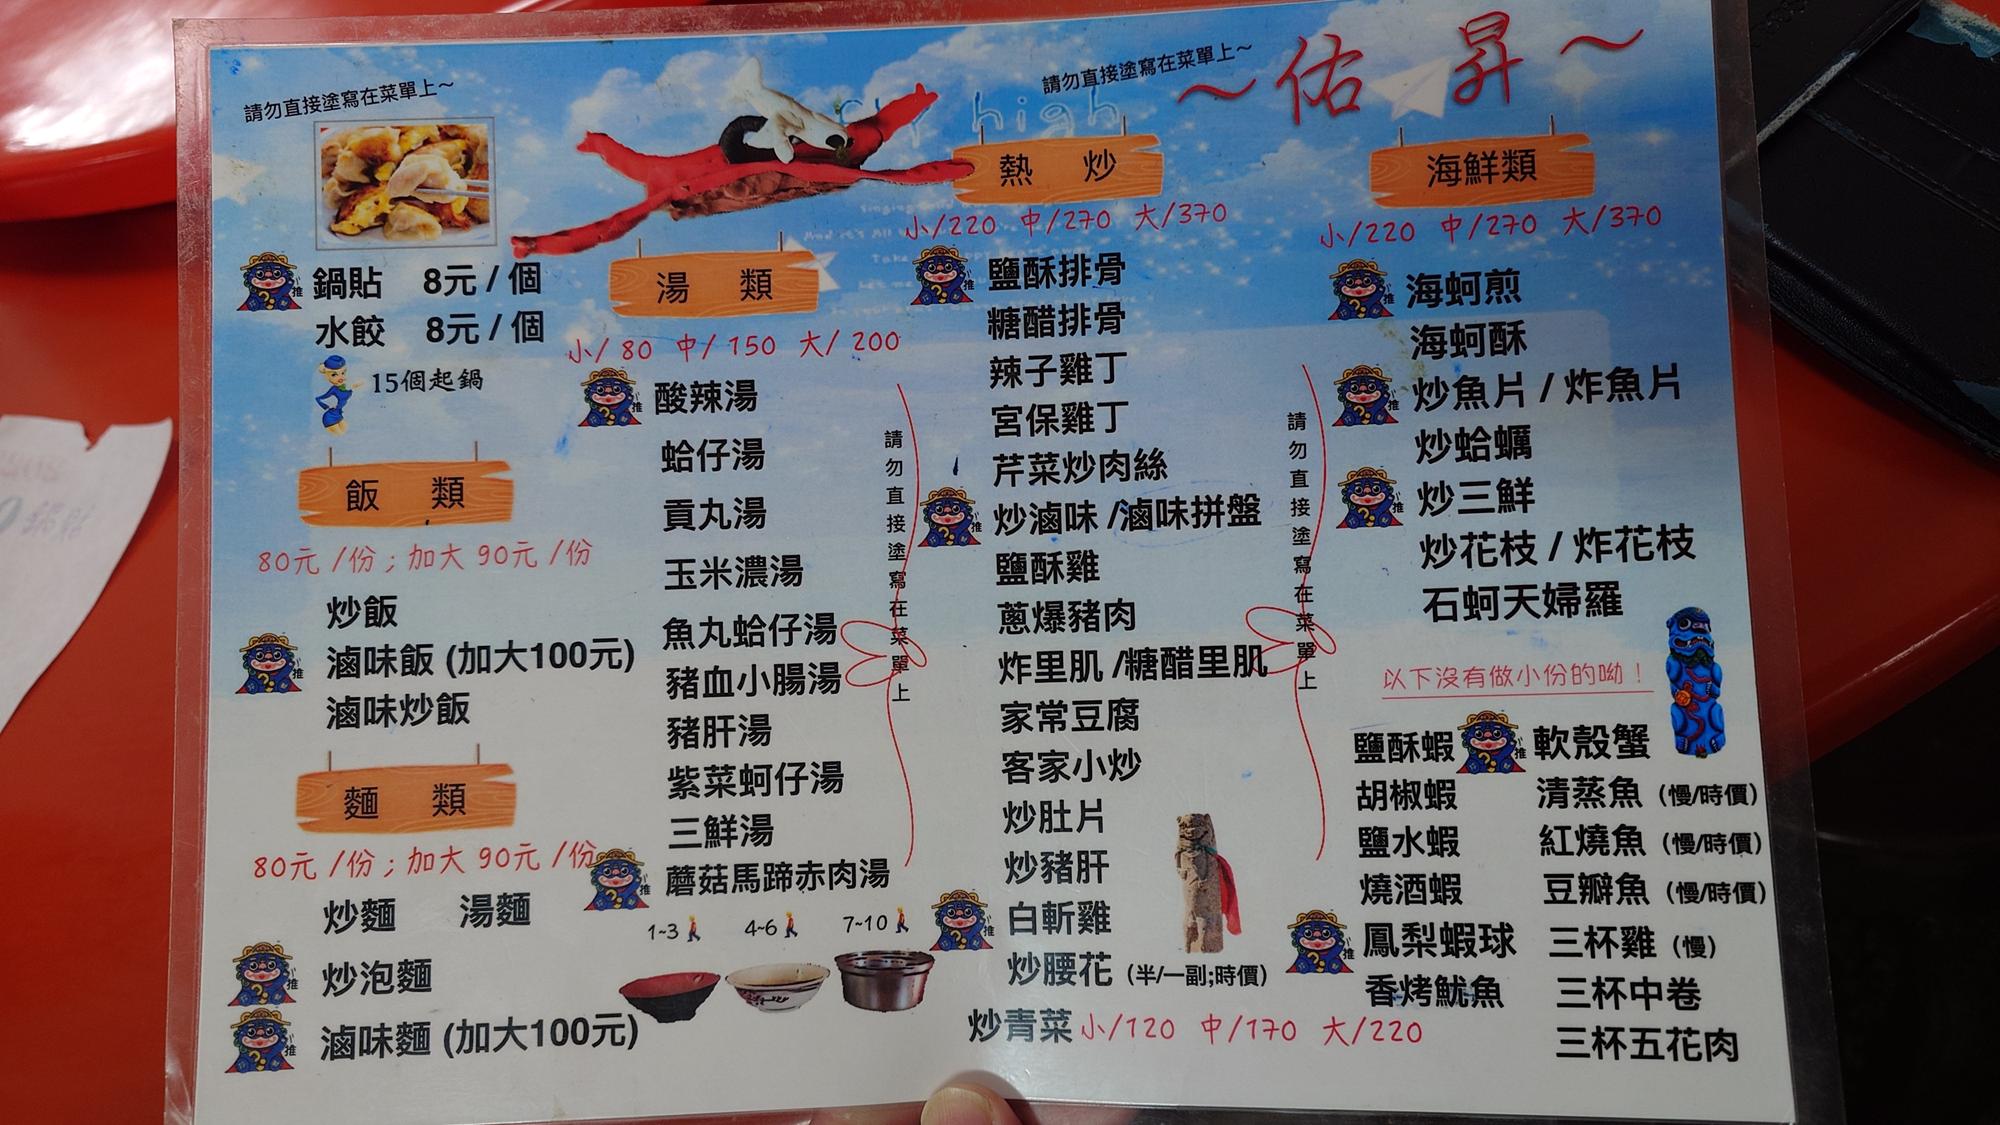 請勿直接塗寫在菜單上～
請勿直接塗寫在菜單上～
～佑 昇～
鍋貼 8元 / 個
水餃 8元 / 個
15個起鍋
飯 類
80元 /份 ; 加大 90元 /份
炒飯
滷味飯 (加大100元)
滷味炒飯
麵 類
80元 /份 ; 加大 90元 /份
炒麵 湯麵
炒泡麵
滷味麵 (加大100元)
湯 類
小/ 80 中/ 150 大/ 200
酸辣湯
蛤仔湯
貢丸湯
玉米濃湯
魚丸蛤仔湯
豬血小腸湯
豬肝湯
紫菜蚵仔湯
三鮮湯
蘑菇馬蹄赤肉湯
1~3 4~6 7~10
請勿直接塗寫在菜單上
high
熱 炒
小/220 中/270 大/370
鹽酥排骨
糖醋排骨
辣子雞丁
宮保雞丁
芹菜炒肉絲
炒滷味 /滷味拼盤
鹽酥雞
蔥爆豬肉
炸里肌 /糖醋里肌
家常豆腐
客家小炒
炒肚片
炒豬肝
白斬雞
炒腰花 (半/一副;時價)
炒青菜 小/120 中/170 大/220
請勿直接塗寫在菜單上
海鮮類
小/220 中/270 大/370
海蚵煎
海蚵酥
炒魚片 / 炸魚片
炒蛤蠣
炒三鮮
炒花枝 / 炸花枝
石蚵天婦羅
以下沒有做小份的呦！
鹽酥蝦 軟殼蟹
胡椒蝦 清蒸魚 (慢/時價)
鹽水蝦 紅燒魚 (慢/時價)
燒酒蝦 豆瓣魚 (慢/時價)
鳳梨蝦球 三杯雞 (慢)
香烤魷魚 三杯中卷
三杯五花肉
推
推
推
推
推
推
推
推
推
推
推
推
推
推